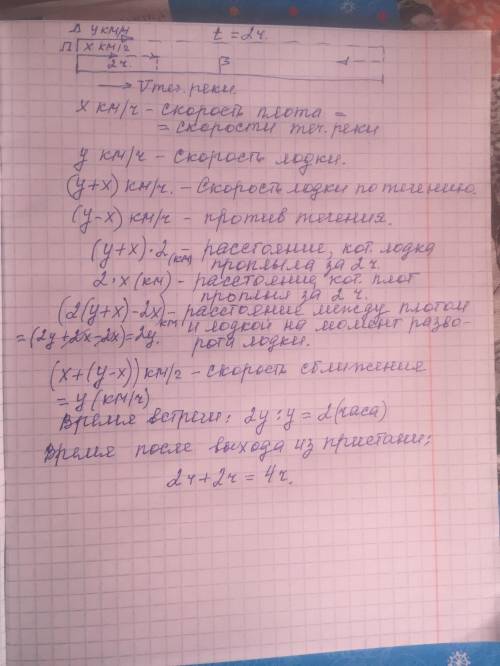 Л y км/ч t = 2ч.
П x км/ч
2ч. B
→ Vтеч. реки
x км/ч - скорость плота =
= скорости теч. реки
y км/ч - скорость лодки.
(y+x) км/ч. - скорость лодки по течению.
(y-x) км/ч - против течения.
(y+x)·2 (км) - расстояние, кот. лодка
проплыла за 2 ч.
2·x (км) - расстояние, кот. плот
проплыл за 2 ч.
(2(y+x)-2x) км - расстояние между плотом
= (2y+2x-2x)=2y. и лодкой на момент разво-
рота лодки.
(x+(y-x)) км/ч - скорость сближения
= y (км/ч)
Время встречи: 2y:y = 2(часа)
Время после выхода из пристани:
2ч+2ч = 4ч.